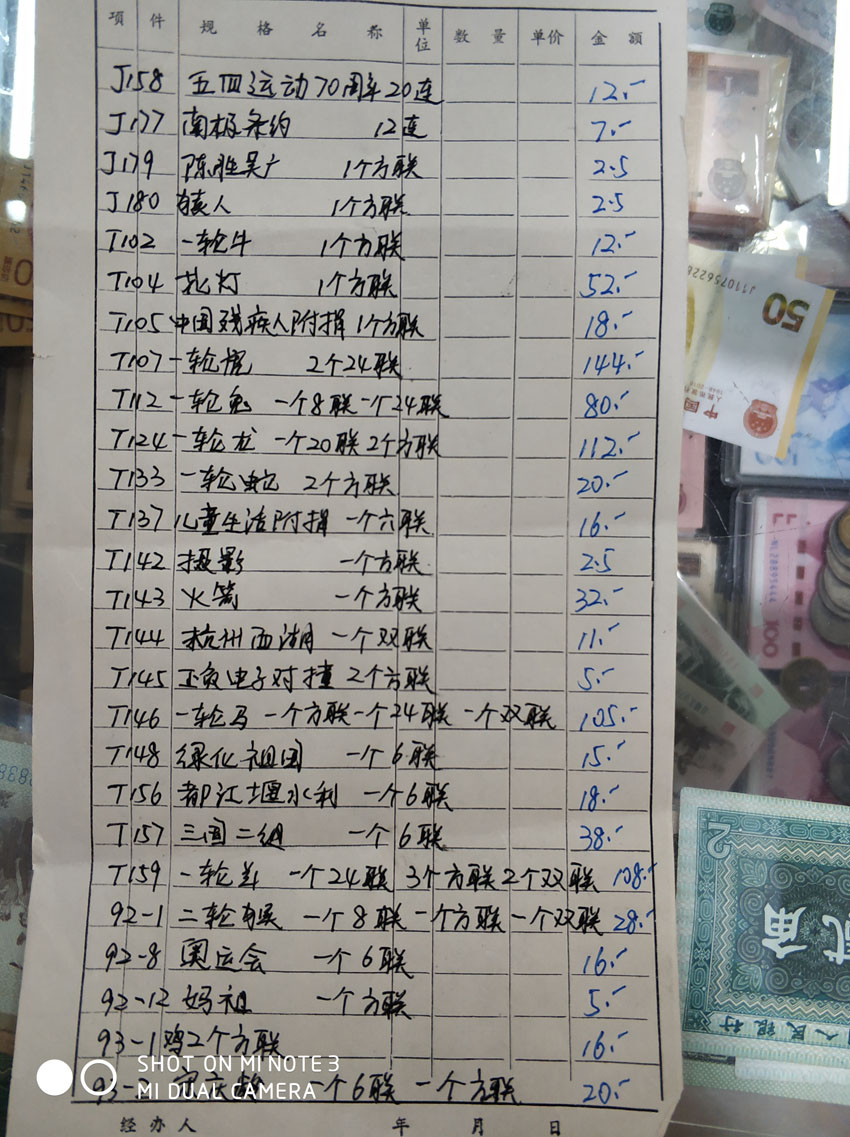 项 件 规 格 名 称 单位 数 量 单价 金 额
J158 五四运动70周年20连 12.-
J177 南极条约 12连 7.-
J179 陈胜吴广 1个方联 2.5
J180 人 1个方联 2.5
T102 一轮牛 1个方联 12.-
T104 花灯 1个方联 52.-
T105 中国残疾人附捐 1个方联 18.-
T107 一轮 2个24联 144.-
T112 一轮兔 一个8联一个24联 80.-
T124 一轮龙 一个20联 2个方联 112.-
T133 一轮蛇 2个方联 20.-
T137 儿童生活附捐 一个六联 16.-
T142 摄影 一个方联 2.5
T143 火箭 一个方联 32.-
T144 杭州西湖 一个双联 11.-
T145 正负电子对撞 2个方联 5.-
T146 一轮马 一个方联一个24联 一个双联 105.-
T148 绿化祖国 一个6联 15.-
T156 都江堰水利 一个6联 18.-
T157 三国二组 一个6联 38.-
T159 一轮羊 一个24联 3个方联2个双联 108.-
92-1 二轮猴 一个8联 一个方联 一个双联 28.-
92-8 奥运会 一个6联 16.-
92-12 妈祖 一个方联 5.-
93-1 鸡2个方联 16.-
93- 一个6联 一个方联 20.-
经 办 人 年 月 日
SHOT ON MI NOTE 3
MI DUAL CAMERA
J110756228
50
中国
100
2
贰角
人民银行